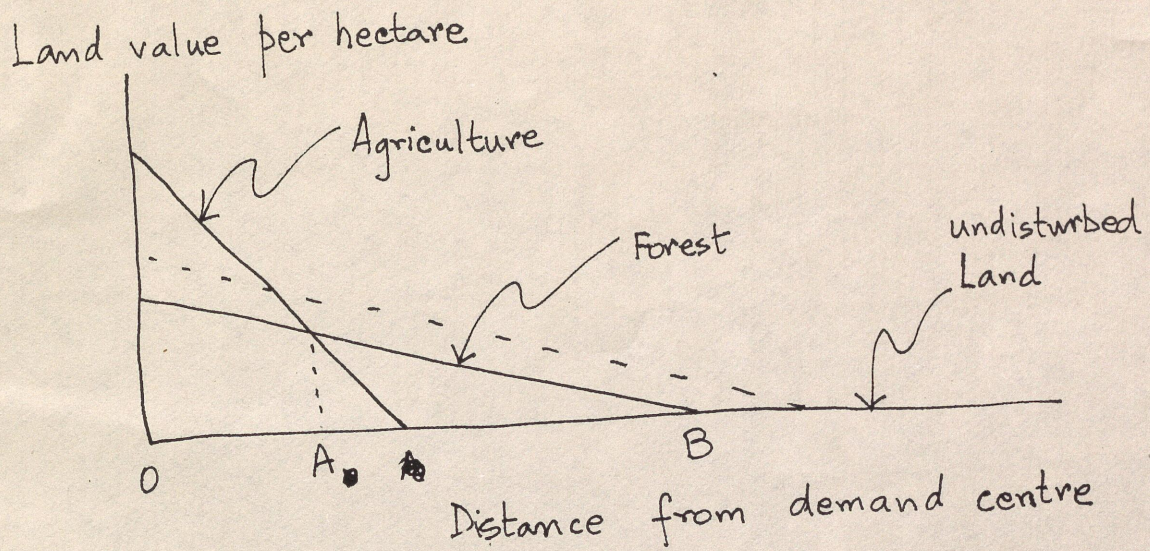 Land value per hectare
Agriculture
Forest
undisturbed
Land
O
A
B
Distance from demand centre